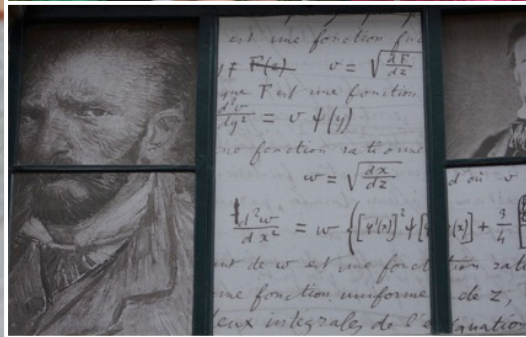 est une fonction
F(z) v = √(dF/dz)
que F est une fonction
d²v/dy² = v ψ(y)
fonction rationne
w = √(dx/dz) d'où v
d²w/dx² = w {[ψ'(x)]² ψ[ψ(x)] + 3/4
de w est une fonction rat
une fonction uniforme de z,
eux intégrales de l'équation